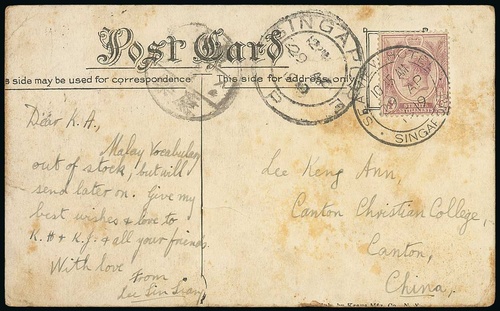 Post Card
s side may be used for correspondence
This side for address only
SINGAPORE
SINGAPO
Dear K. A.,
Malay Vocabulary
out of stock, but will
send later on. Give my
best wishes & love to
K. H & K. J. & all your friends.
With love
From
Lee Sin Siang
Lee Keng Ann,
Canton Christian College,
Canton,
China,